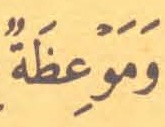 وَمَوْعِظَةً